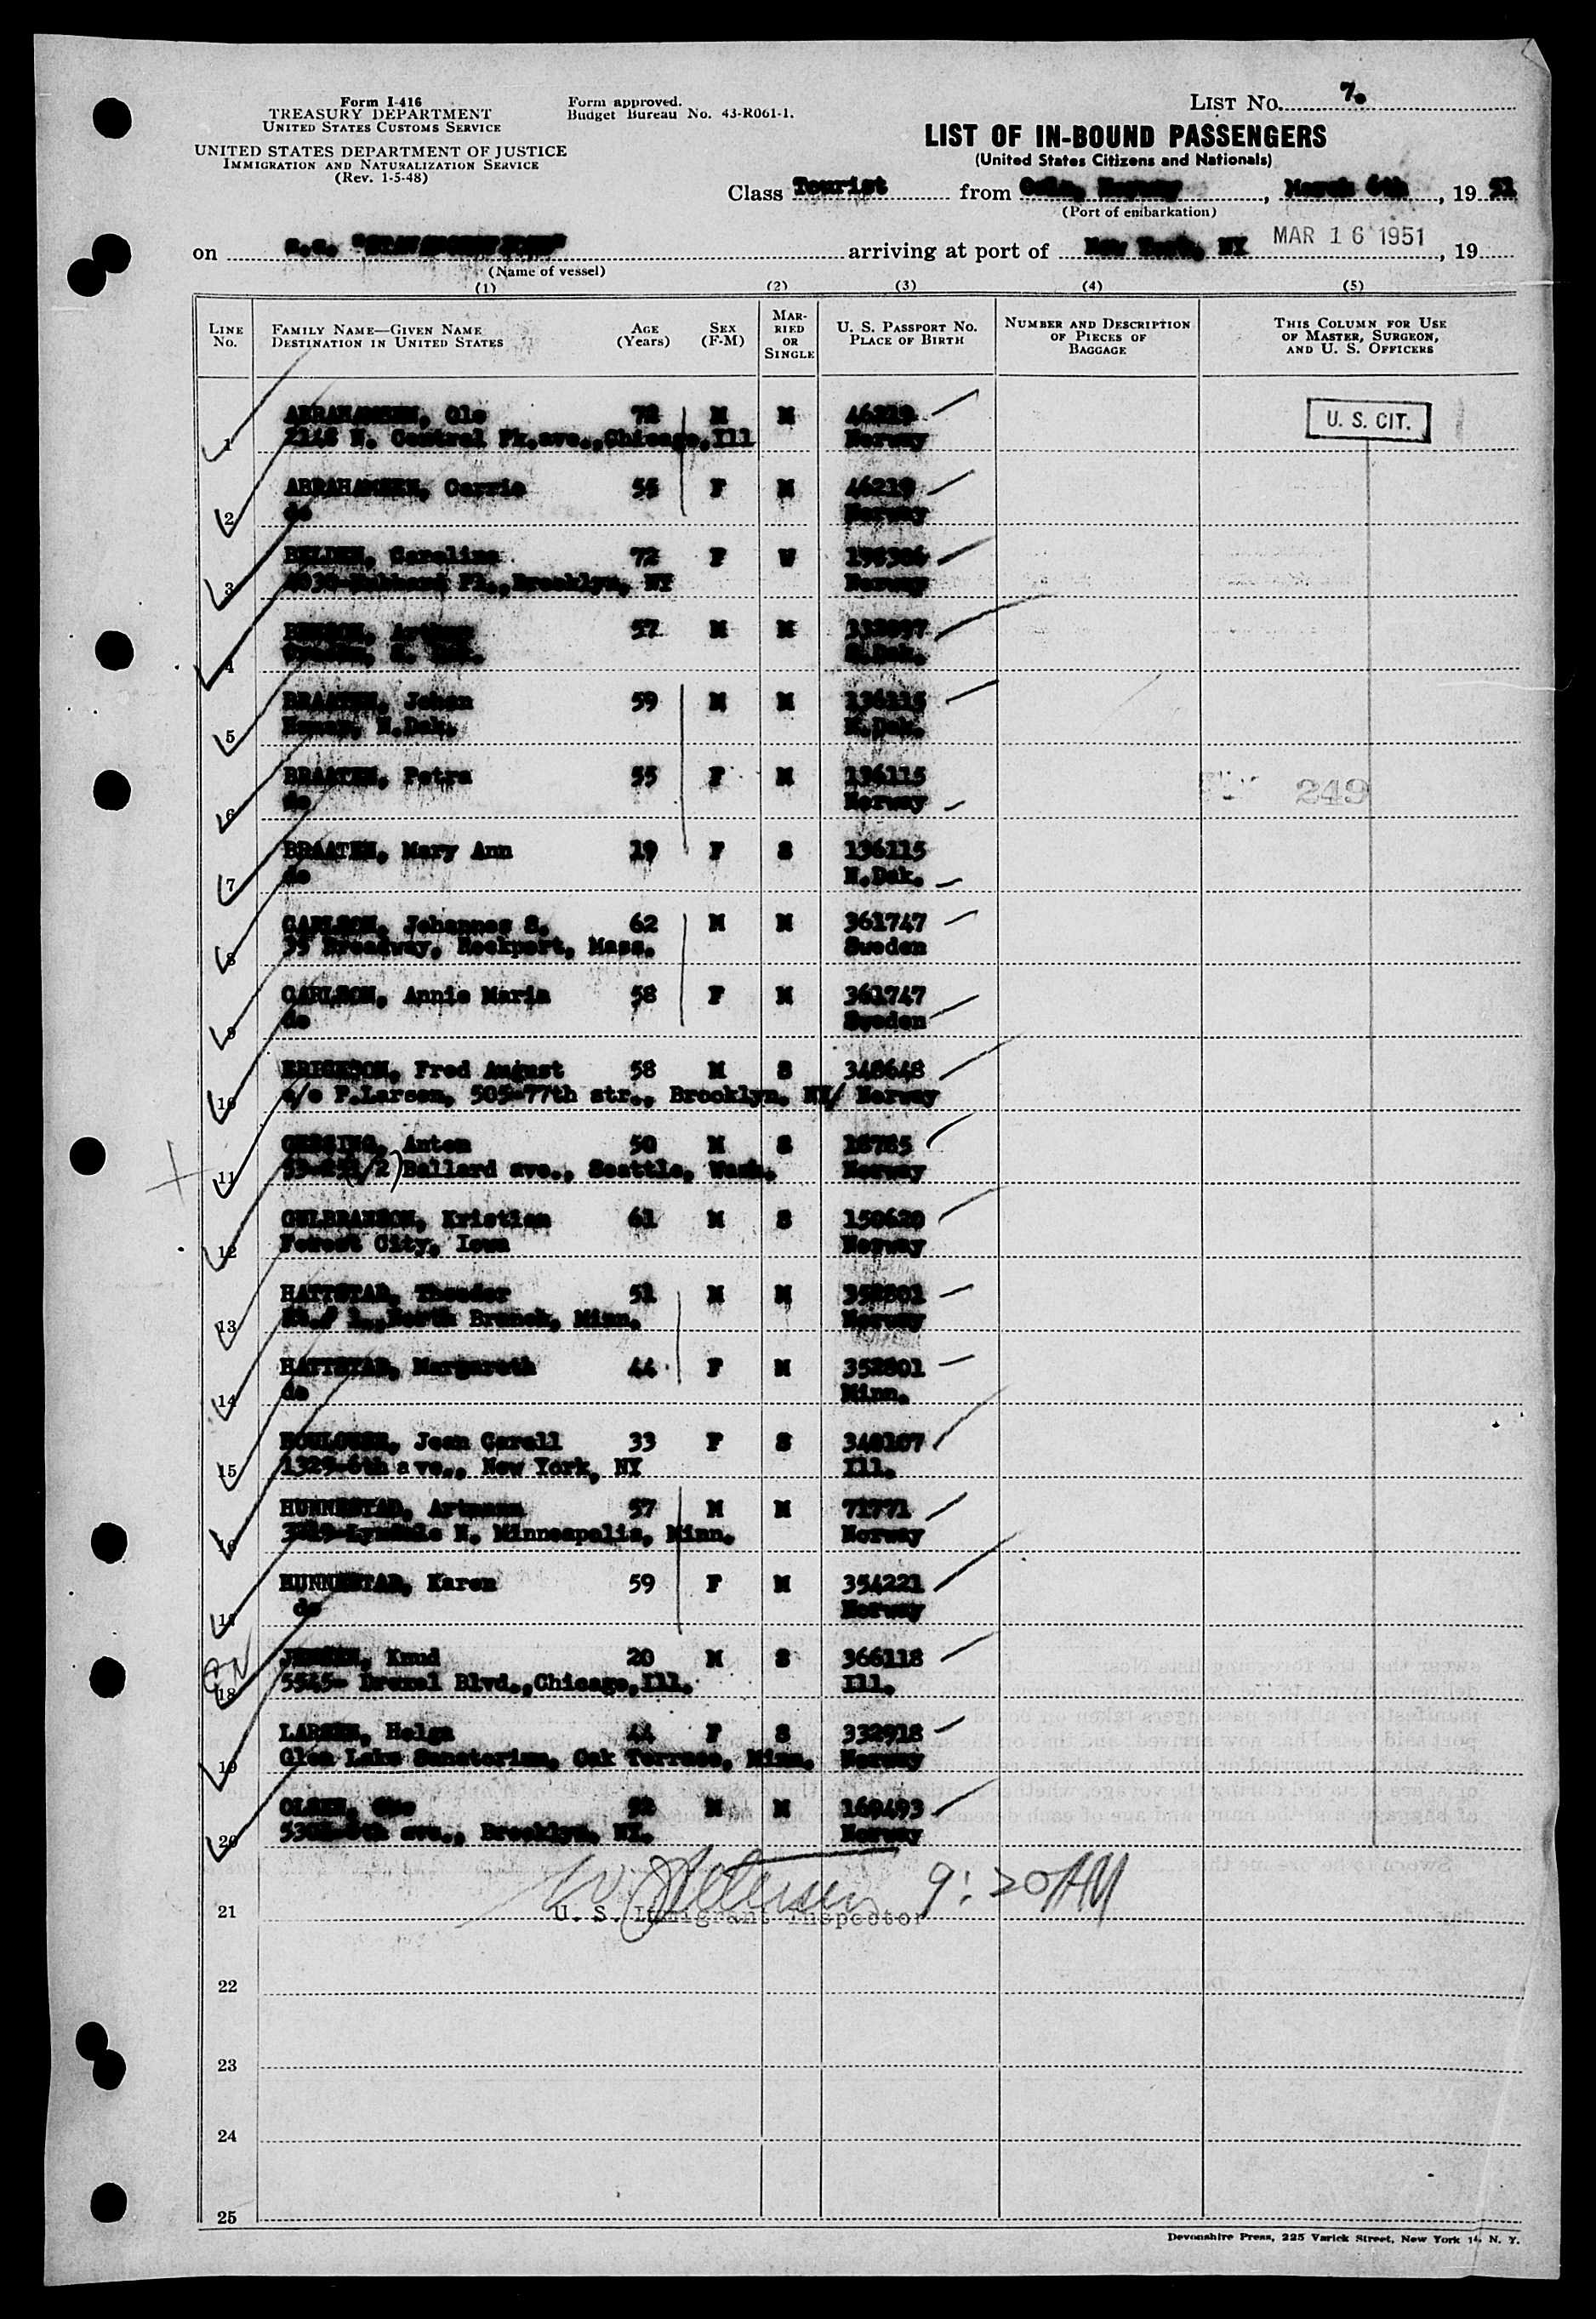 Form I-416
TREASURY DEPARTMENT
UNITED STATES CUSTOMS SERVICE
UNITED STATES DEPARTMENT OF JUSTICE
IMMIGRATION AND NATURALIZATION SERVICE
(Rev. 1-5-48)
Form approved.
Budget Bureau No. 43-R061-1.
LIST NO. 7.
LIST OF IN-BOUND PASSENGERS
(United States Citizens and Nationals)
Class Tourist from Oslo, Norway, March 6th, 19 51
(Port of embarkation)
on s.s. arriving at port of New York, NY MAR 16 1951, 19
(Name of vessel)
(1) (2) (3) (4) (5)
LINE No. FAMILY NAME—GIVEN NAME DESTINATION IN UNITED STATES AGE (Years) SEX (F-M) MARRIED OR SINGLE U. S. PASSPORT NO. PLACE OF BIRTH NUMBER AND DESCRIPTION OF PIECES OF BAGGAGE THIS COLUMN FOR USE OF MASTER, SURGEON, AND U. S. OFFICERS
1 ABRAHAMSEN, Ole 72 M M 46219 U. S. CIT.
2148 N. Central Pk.ave.,Chicago,Ill Norway
2 ABRAHAMSEN, Carrie 55 F M 46219
do Norway
3 BELDEN, Caroline 72 F W
Pl.,Brooklyn, NY Norway
4 57 M M
5 BRAATEN, Johan 59 M M 136115
N.Dak. N.Dak.
6 BRAATEN, Petra 55 F M 136115
do Norway
249
7 BRAATEN, Mary Ann 19 F S 136115
do N.Dak.
8 CARLSON, Johannes S. 62 M M 361747
35 Broadway, Rockport, Mass. Sweden
9 CARLSON, Annie Maria 58 F M 361747
do Sweden
10 ERICKSON, Fred August 58 M S 348648
c/o F.Larsen, 505-77th str., Brooklyn, NY/ Norway
11 Anton 50 M S 18785
Ballard ave., Seattle, Wash. Norway
12 GULBRANSON, Kristian 61 M S 150620
Forest City, Iowa Norway
13 HATTSTAD, Theodor 51 M M 352801
North Branch, Minn. Norway
14 HATTSTAD, Margareth 44 F M 352801
do Minn.
15 Jean Carell 33 F S 348107
1329-6th ave., New York, NY Ill.
16 HUNNESTAD, Artmann 57 M M 71771
Lyndale N. Minneapolis, Minn. Norway
17 HUNNESTAD, Karen 59 F M 354221
do Norway
18 JENSEN, Knud 20 M S 366118
5545- Drexel Blvd.,Chicago,Ill. Ill.
19 LARSEN, Helga 44 F S 332918
Glen Lake Sanatorium, Oak Terrace, Minn. Norway
20 OLSEN, 52 M M 160493
ave., Brooklyn, NY. Norway
9:20 AM
21 U. S. Immigrant Inspector
22
23
24
25
Devonshire Press, 225 Varick Street, New York 14, N. Y.